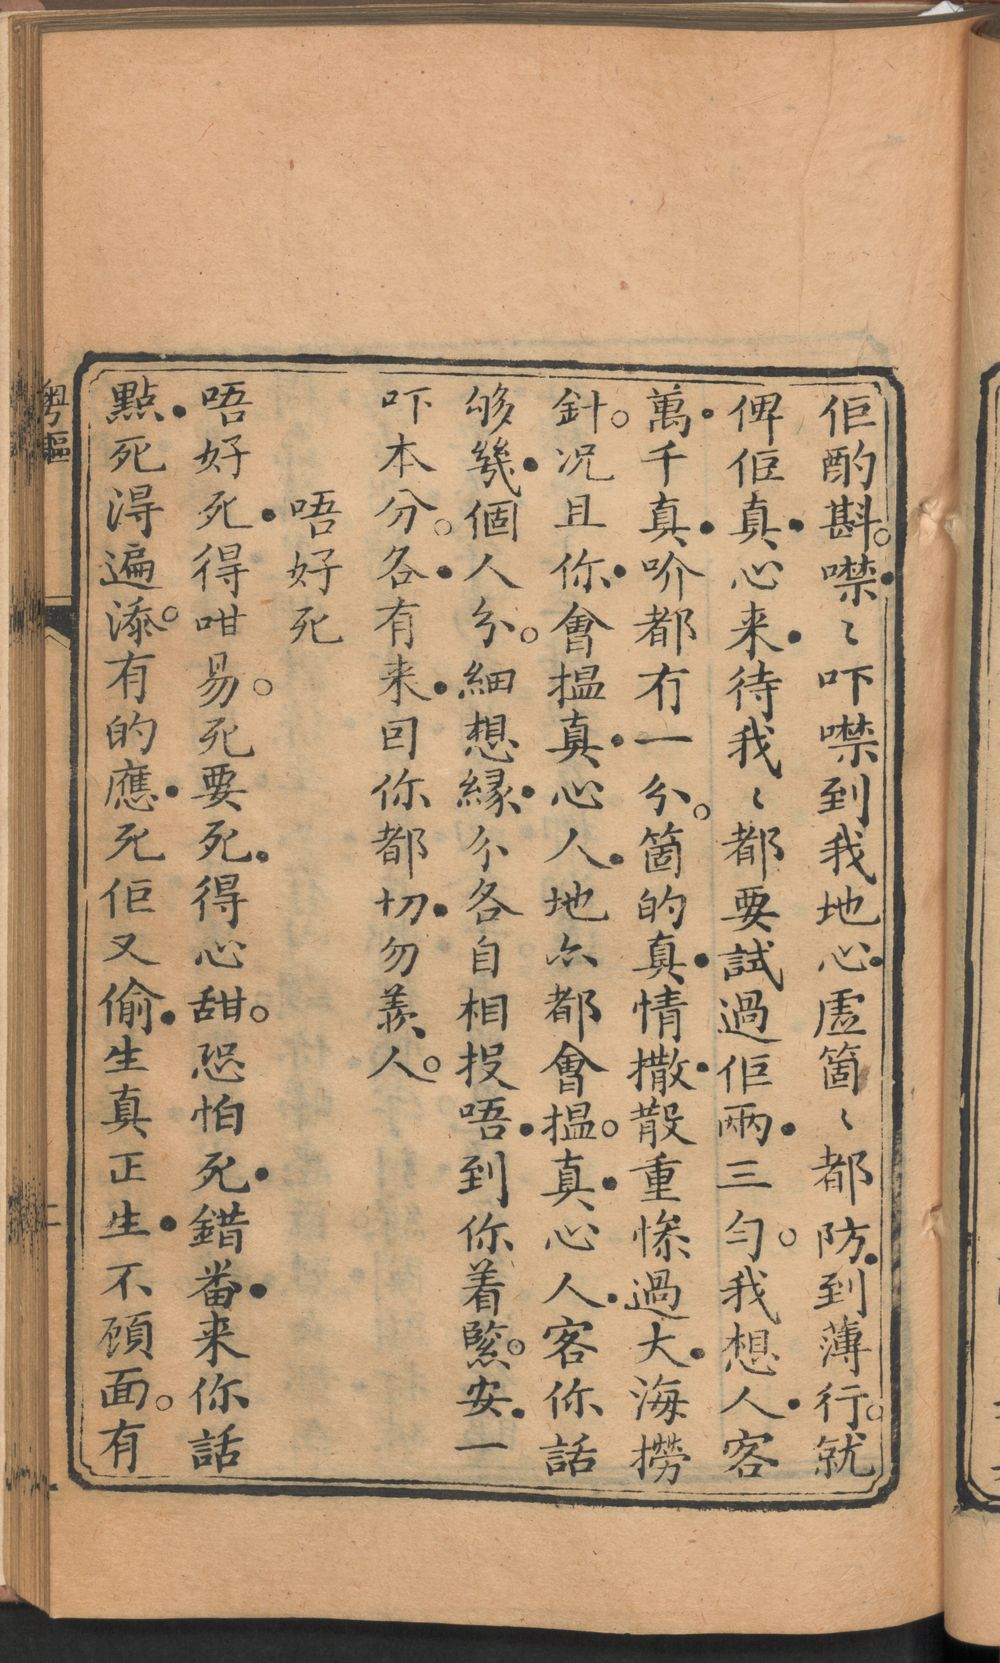 佢酌斟。噤〻吓噤到我地心虛箇〻都防到薄行。就
俾佢真心来待我〻都要試過佢兩三勻。我想人客
萬千真吤都冇一分。箇的真情撒散重慘過大海撈
針。况且你會搵真心人地亦都會搵。真心人客你話
够幾個人分。細想緣分各自相投唔到你着緊。安一
吓本分。各有来因你都切勿羨人。
唔好死
唔好死得咁易。死要死得心甜。恐怕死錯番来你話
點死淂遍添。有的應死佢又偷生真正生不顧面。有
粵謳
二